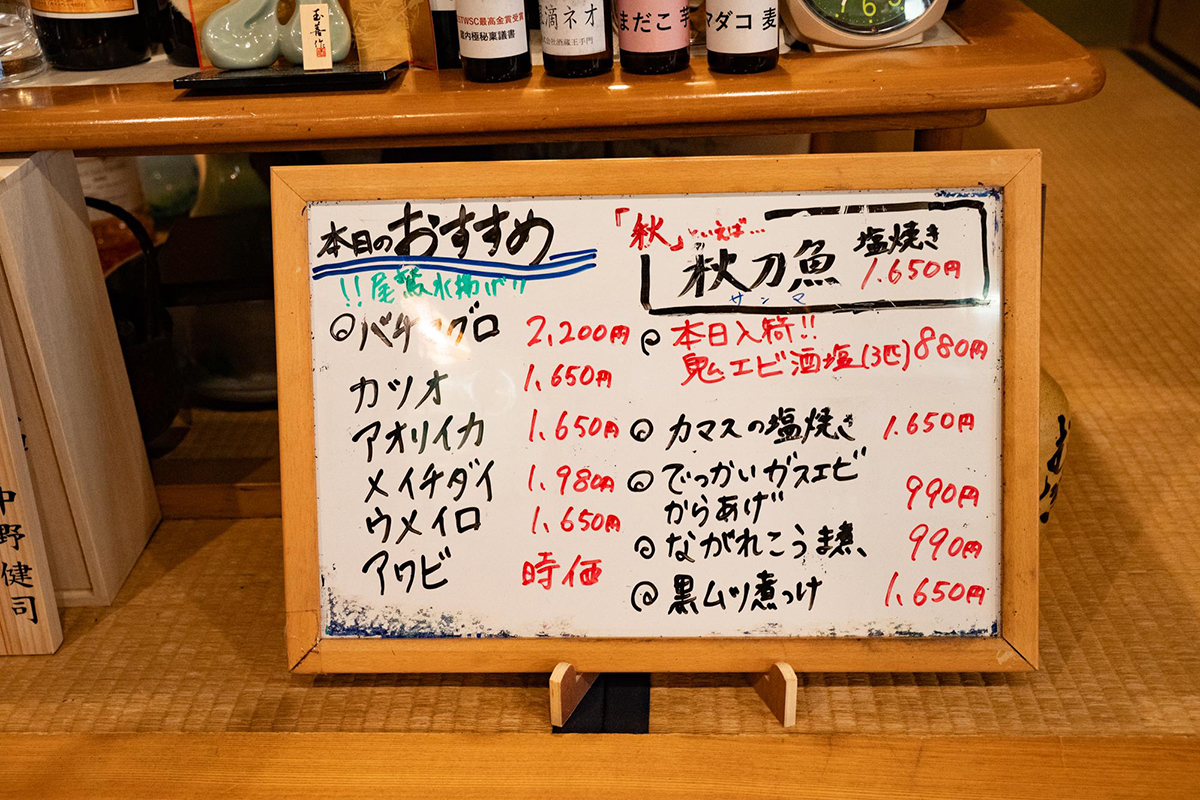 玉善作
TWSC最高金賞受賞
蔵内極秘稟議書
滴ネオ
まだこ芋
マダコ 麦
中野健司
本日のおすすめ
!!尾鷲水揚げ!!
バチマグロ 2,200円
カツオ 1,650円
アオリイカ 1,650円
メイチダイ 1,980円
ウメイロ 1,650円
アワビ 時価
「秋」といえば…
秋刀魚 塩焼き 1,650円
サンマ
本日入荷!!
鬼エビ酒塩(3匹) 880円
カマスの塩焼き 1,650円
でっかいガスエビ
からあげ 990円
ながれこうま煮 990円
黒ムツ煮つけ 1,650円